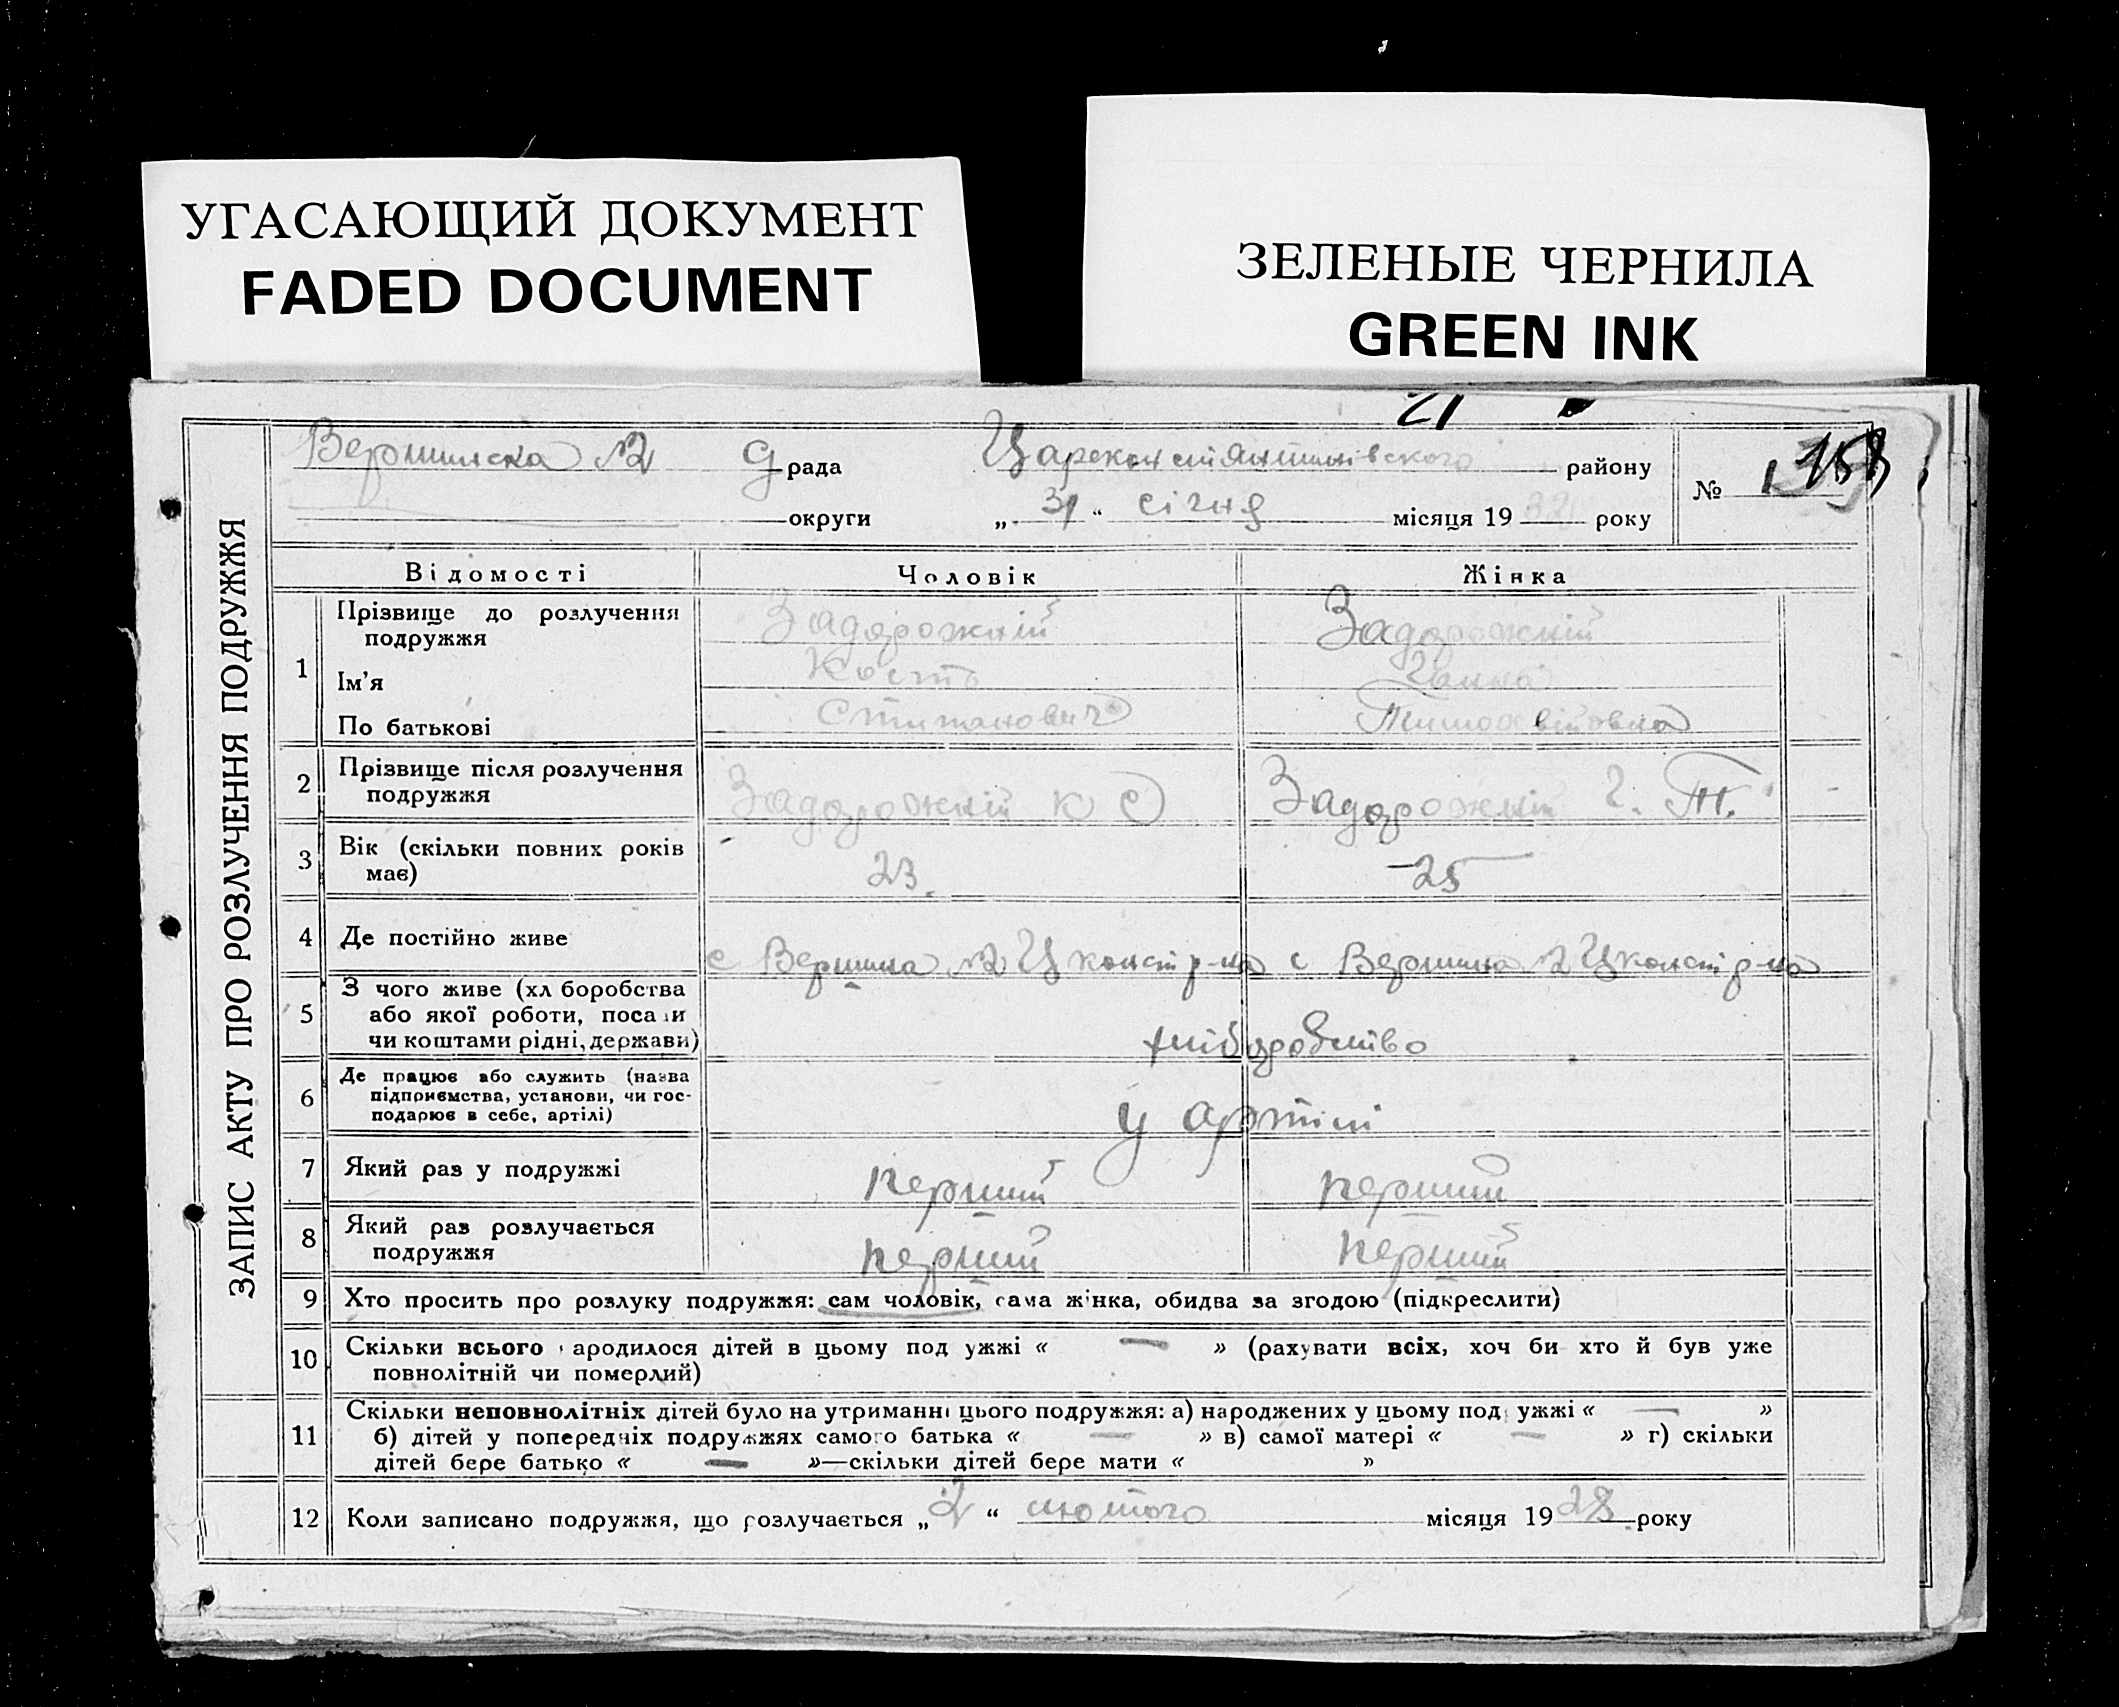 УГАСАЮЩИЙ ДОКУМЕНТ
FADED DOCUMENT
ЗЕЛЕНЫЕ ЧЕРНИЛА
GREEN INK
21
ЗАПИС АКТУ ПРО РОЗЛУЧЕННЯ ПОДРУЖЖЯ
Вершинска №2 С рада Царсконстянтинівского району
округи „31“ січня місяця 1932 року
№
Відомості Чоловік Жінка
1 Прізвище до розлучення подружжя Задорожній Задорожній
Ім'я Кость
По батькові Стипанович Тимохвіївна
2 Прізвище після розлучення подружжя Задорожній К С Задорожній Г. Т.
3 Вік (скільки повних років має) 23. 25
4 Де постійно живе с Вершина №2 Цконст р-на с Вершина №2 Цконст р-на
5 З чого живе (хлiборобства або якої роботи, посади чи коштами рідні, держави) хліборобство
6 Де працює або служить (назва підприємства, установи, чи господарює в себе, артілі) у артілі
7 Який раз у подружжі перший перший
8 Який раз розлучається подружжя перший перший
9 Хто просить про розлуку подружжя: сам чоловік, сама жінка, обидва за згодою (підкреслити)
10 Скільки всього народилося дітей в цьому подружжі « — » (рахувати всіх, хоч би хто й був уже
повнолітній чи померлий)
11 Скільки неповнолітніх дітей було на утриманні цього подружжя: а) народжених у цьому подружжі « — »
б) дітей у попередніх подружжях самого батька « — » в) самої матері « — » г) скільки
дітей бере батько « — »—скільки дітей бере мати « »
12 Коли записано подружжя, що розлучається „2“ лютого місяця 1928 року